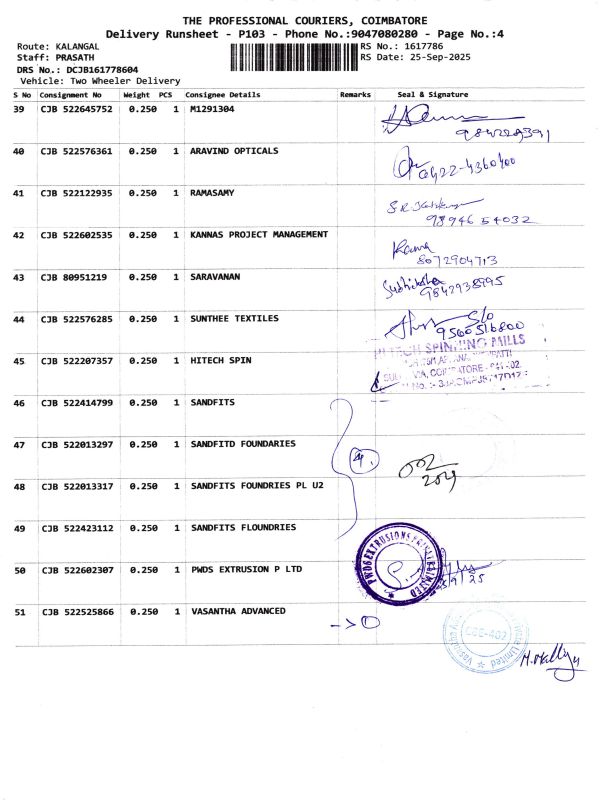 THE PROFESSIONAL COURIERS, COIMBATORE
Delivery Runsheet - P103 - Phone No.:9047080280 - Page No.:4
Route: KALANGAL RS No.: 1617786
Staff: PRASATH RS Date: 25-Sep-2025
DRS No.: DCJB161778604
Vehicle: Two Wheeler Delivery
S No Consignment No Weight PCS Consignee Details Remarks Seal & Signature
39 CJB 522645752 0.250 1 M1291304
40 CJB 522576361 0.250 1 ARAVIND OPTICALS
0422-4360400
41 CJB 522122935 0.250 1 RAMASAMY
98946 54032
42 CJB 522602535 0.250 1 KANNAS PROJECT MANAGEMENT
8072904713
43 CJB 80951219 0.250 1 SARAVANAN
9842938995
44 CJB 522576285 0.250 1 SUNTHEE TEXTILES
S/o
9500516800
HITECH SPINNING MILLS
45 CJB 522207357 0.250 1 HITECH SPIN
46 CJB 522414799 0.250 1 SANDFITS
47 CJB 522013297 0.250 1 SANDFITD FOUNDARIES
4.
48 CJB 522013317 0.250 1 SANDFITS FOUNDRIES PL U2
49 CJB 522423112 0.250 1 SANDFITS FLOUNDRIES
50 CJB 522602307 0.250 1 PWDS EXTRUSION P LTD
51 CJB 522525866 0.250 1 VASANTHA ADVANCED
-> 1
CBE-402